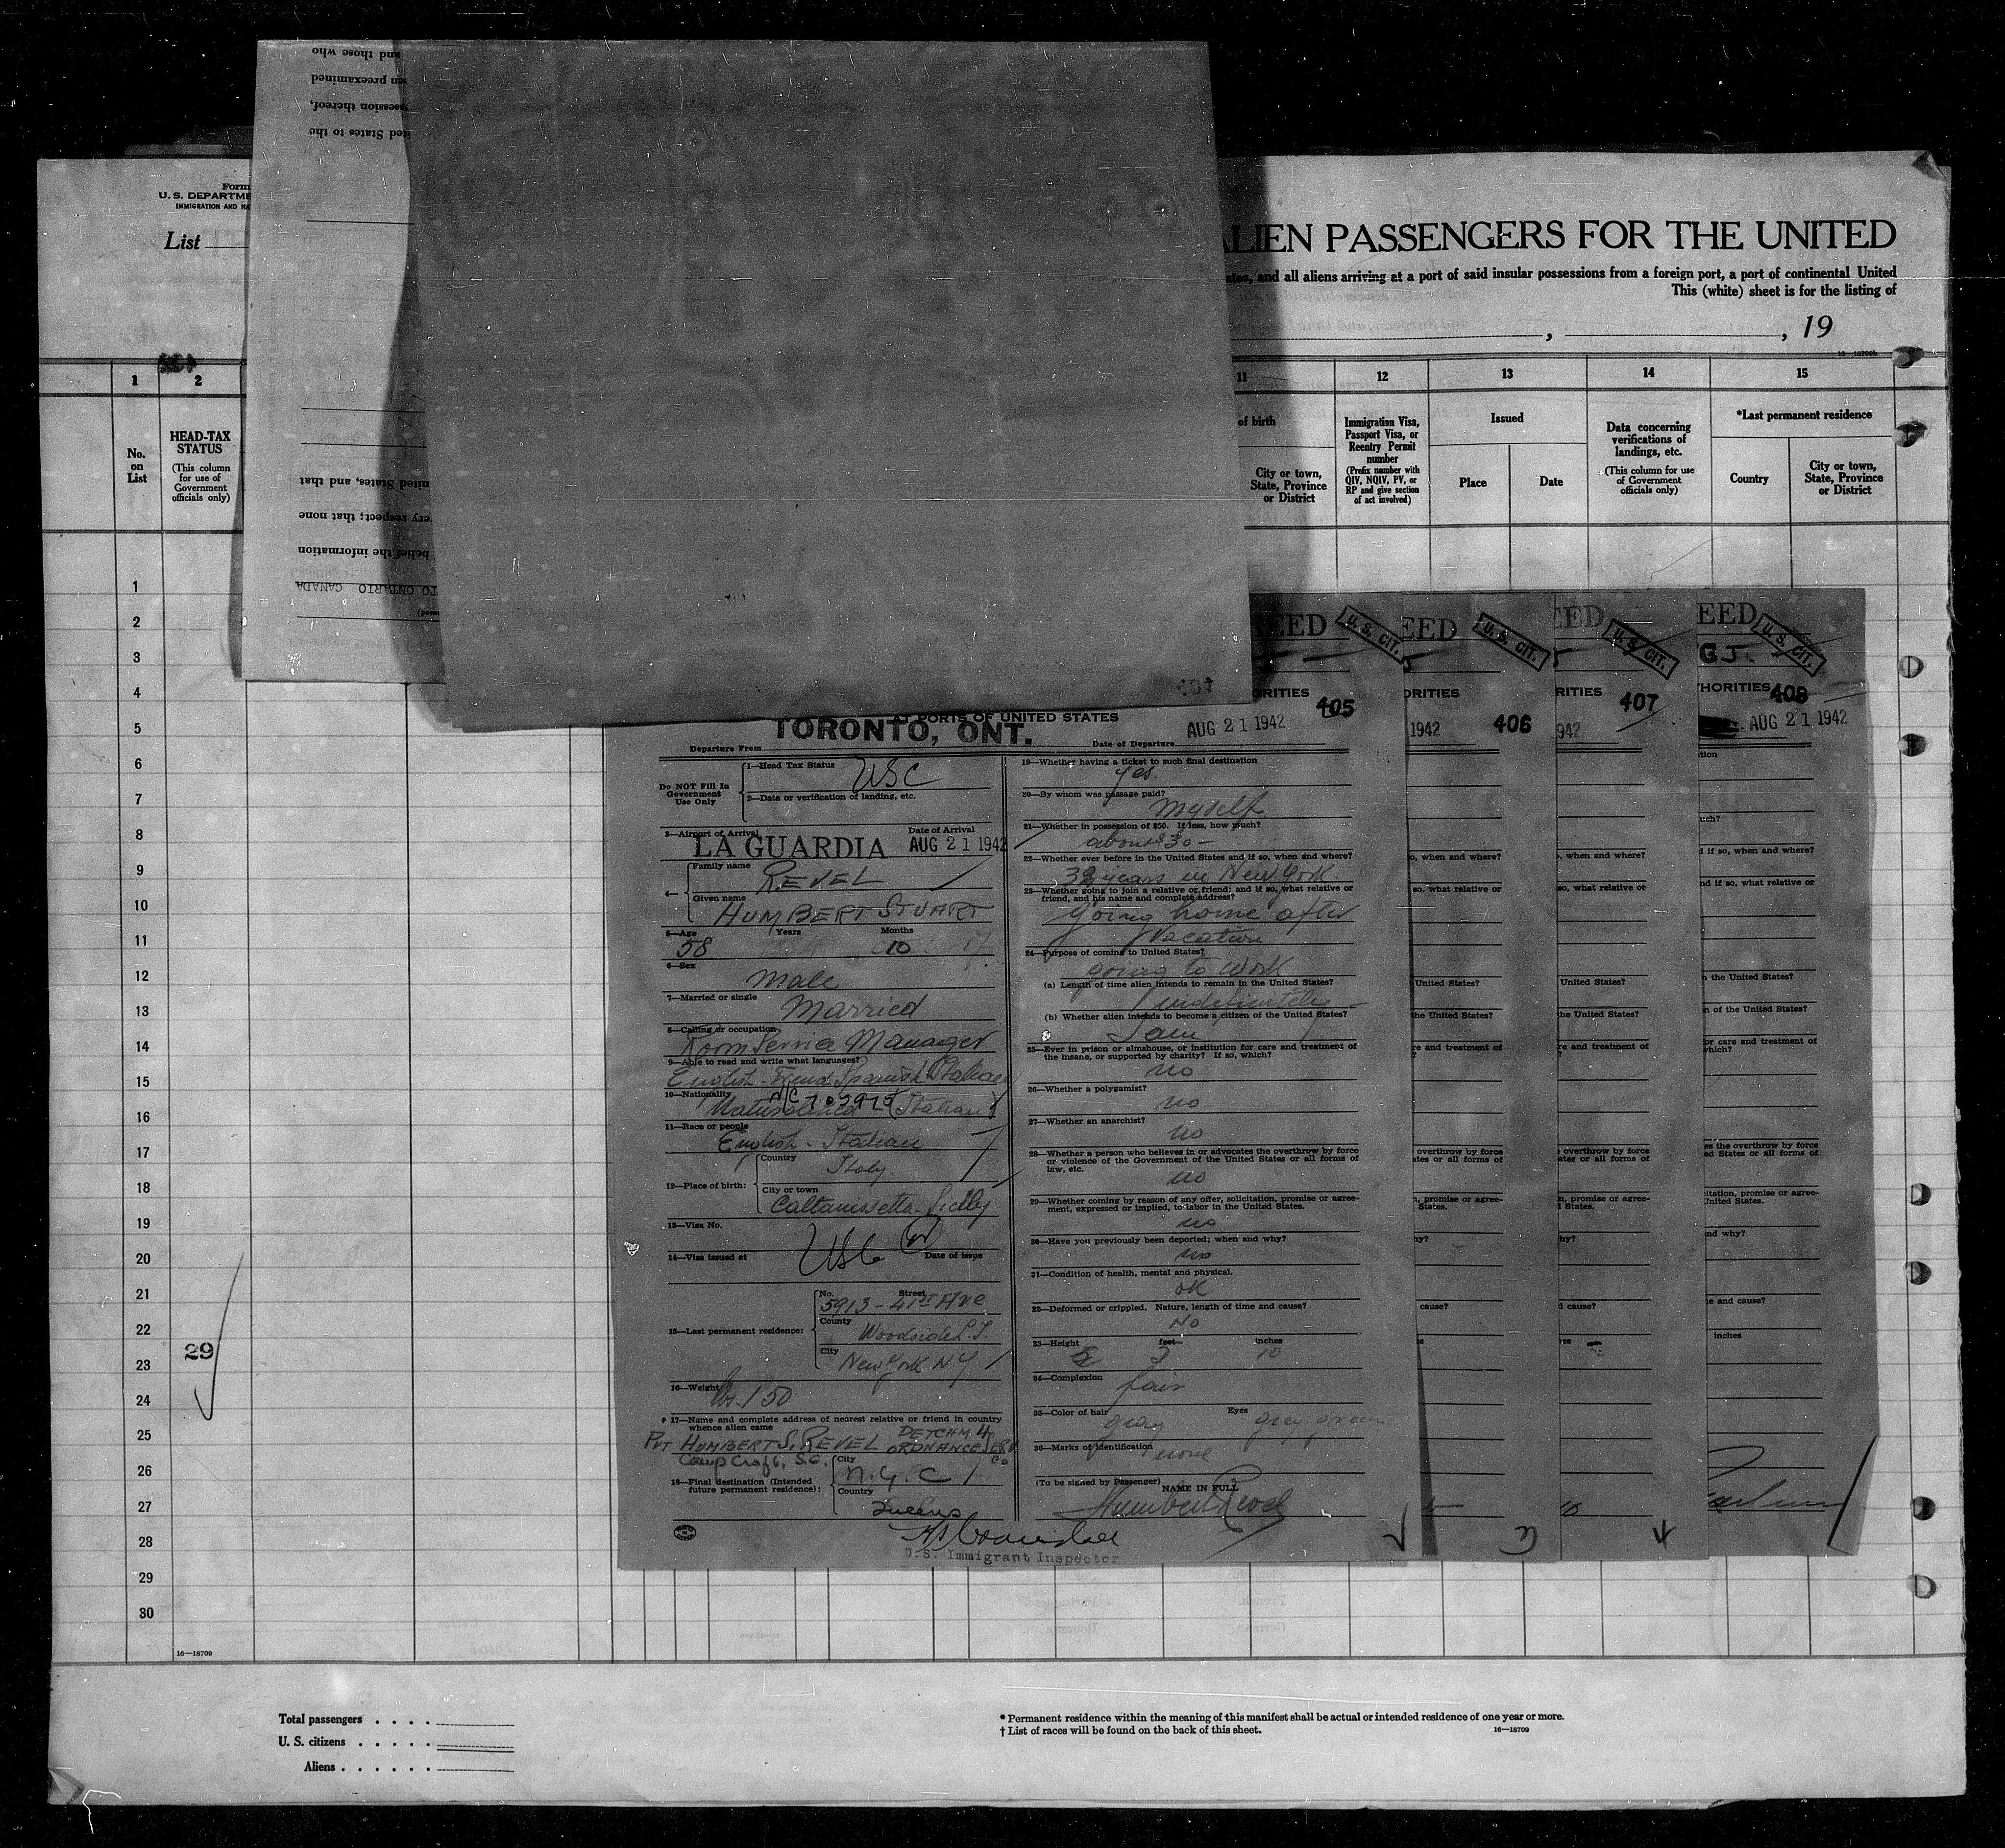 and those who
en preexamined
ssession thereof,
ited States to the
nited States, and that
very respect; that none
belief the information
TO ONTARIO CANADA
Form
U. S. DEPARTME
IMMIGRATION AND NA
List
ALIEN PASSENGERS FOR THE UNITED
ates, and all aliens arriving at a port of said insular possessions from a foreign port, a port of continental United
This (white) sheet is for the listing of
, , 19
1 2 11 12 13 14 15
No.
on
List
HEAD-TAX
STATUS
(This column
for use of
Government
officials only)
of birth
City or town,
State, Province
or District
Immigration Visa,
Passport Visa, or
Reentry Permit
number
(Prefix number with
QIV, NQIV, PV, or
RP and give section
of act involved)
Issued
Place Date
Data concerning
verifications of
landings, etc.
(This column for use
of Government
officials only)
*Last permanent residence
Country
City or town,
State, Province
or District
1
2
3
4
5
6
7
8
9
10
11
12
13
14
15
16
17
18
19
20
21
22
23
24
25
26
27
28
29
30
29
16—18709
EED U. S. CIT.
ORITIES 405
AT PORTS OF UNITED STATES
TORONTO, ONT. AUG 21 1942
Departure From Date of Departure
Do NOT Fill In
Government
Use Only
1—Head Tax Status USC
2—Data or verification of landing, etc.
3—Airport of Arrival Date of Arrival
LA GUARDIA AUG 21 1942
4— Family name
REVEL
Given name
HUMBERT STUART
5—Age Years Months
58 10
6—Sex
Male
7—Married or single
Married
8—Calling or occupation
Room Service Manager
9—Able to read and write what languages?
English - French Spanish Italian
10—Nationality
Naturalized (Italian)
11—Race or people
English - Italian
12—Place of birth:
Country
Italy
City or town
Caltanissetta - Sicily
13—Visa No.
14—Visa issued at USC Date of issue
15—Last permanent residence:
No. Street
5913 - 41st Ave
County
Woodside L.I.
City
New York N.Y
16—Weight
lbs. 150
17—Name and complete address of nearest relative or friend in country
whence alien came
PVT HUMBERT S. REVEL DETCHM 4 ORDNANCE SERV Co
Camp Croft, S.C.
18—Final destination (Intended
future permanent residence):
City
N.Y.C
Country
Queens
U.S. Immigrant Inspector
19—Whether having a ticket to such final destination
yes
20—By whom was passage paid?
myself
21—Whether in possession of $50. If less, how much?
about $30-
22—Whether ever before in the United States and if so, when and where?
years in New York
23—Whether going to join a relative or friend; and if so, what relative or
friend, and his name and complete address?
going home after
Vacation
24—Purpose of coming to United States?
going to work
(a) Length of time alien intends to remain in the United States?
indefinitely
(b) Whether alien intends to become a citizen of the United States?
I am
25—Ever in prison or almshouse, or institution for care and treatment of
the insane, or supported by charity? If so, which?
no
26—Whether a polygamist?
no
27—Whether an anarchist?
no
28—Whether a person who believes in or advocates the overthrow by force
or violence of the Government of the United States or all forms of
law, etc.
no
29—Whether coming by reason of any offer, solicitation, promise or agree-
ment, expressed or implied, to labor in the United States.
no
30—Have you previously been deported; when and why?
no
31—Condition of health, mental and physical.
ok
32—Deformed or crippled. Nature, length of time and cause?
No
33—Height feet inches
10
34—Complexion
fair
35—Color of hair Eyes
gray grey green
36—Marks of identification
none
(To be signed by Passenger)
NAME IN FULL
Humbert Revel
EED U. S. CIT.
ORITIES
1942 406
o, when and where?
so, what relative or
United States?
the United States?
re and treatment of
?
overthrow by force
ates or all forms of
n, promise or agree-
States.
hy?
cause?
EED U. S. CIT.
RITIES 407
942
o, when and where?
so, what relative or
United States?
the United States?
re and treatment of
?
overthrow by force
ates or all forms of
n, promise or agree-
d States.
hy?
d cause?
EED U. S. CIT.
GJ.
THORITIES 408
AUG 21 1942
tion
uch?
d if so, when and where?
nd if so, what relative or
n the United States?
n of the United States?
or care and treatment of
which?
es the overthrow by force
ed States or all forms of
citation, promise or agree-
United States.
nd why?
e and cause?
inches
Total passengers . . . .
U. S. citizens . . . . .
Aliens . . . . . .
* Permanent residence within the meaning of this manifest shall be actual or intended residence of one year or more.
† List of races will be found on the back of this sheet. 16—18709